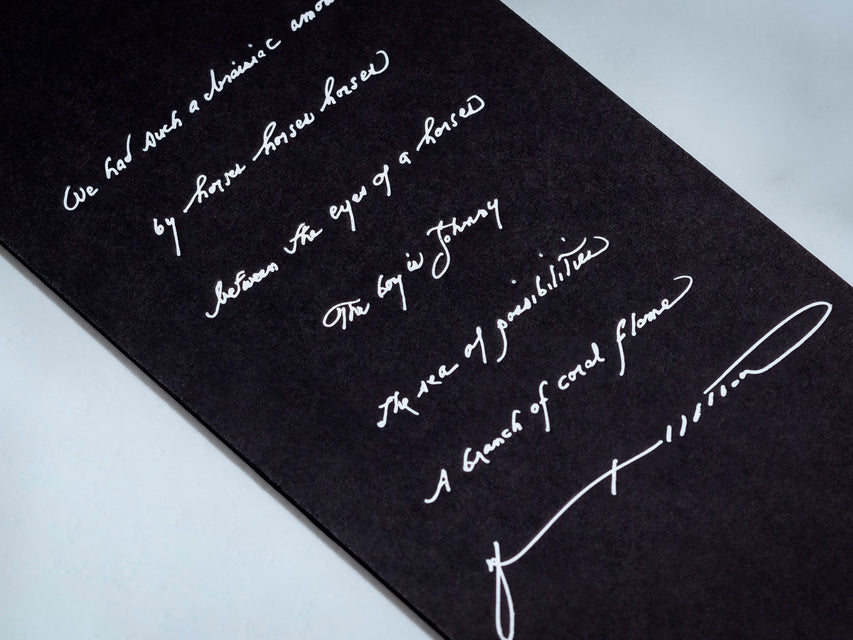 We had such a brainiac amou
by horses horses horses
between the eyes of a horses
The boy is Johnny
the sea of possibilities
A branch of coral flame